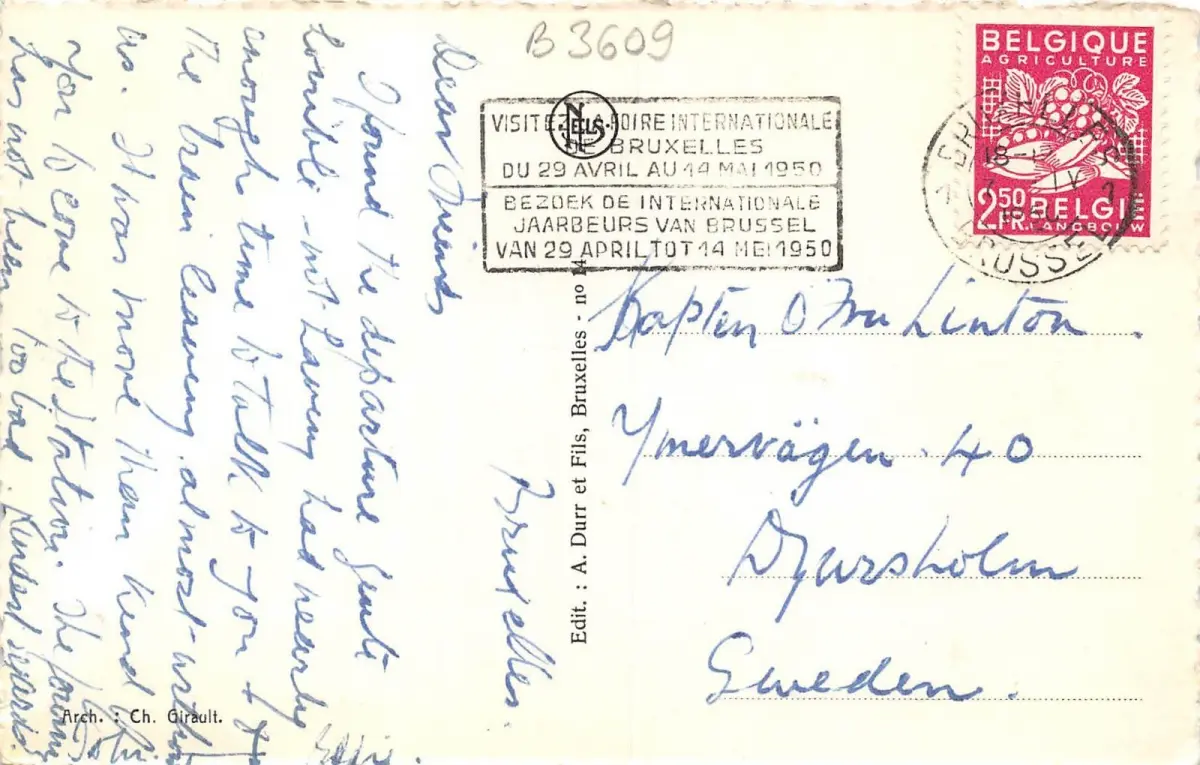 B 3609
BELGIQUE
AGRICULTURE
2.50
FR.
BELGIE
LANDBOUW
BRUXELLES
18
IV
1950
BRUSSEL
NELS
VISITEZ LA FOIRE INTERNATIONALE
DE BRUXELLES
DU 29 AVRIL AU 14 MAI 1950
BEZOEK DE INTERNATIONALE
JAARBEURS VAN BRUSSEL
VAN 29 APRIL TOT 14 MEI 1950
Bruxelles.
Dear Friends
I found the departure quite
horrible - not having had nearly
enough time to talk to you &
the train leaving almost without
us. It was more than kind
you to come to the station. The
has not been too bad Kindest regards
Kapten O Mrs Linton.
Ymervägen. 40
Djursholm
Sweden.
Edit. : A. Durr et Fils, Bruxelles - no 14
Arch. : Ch. Girault.